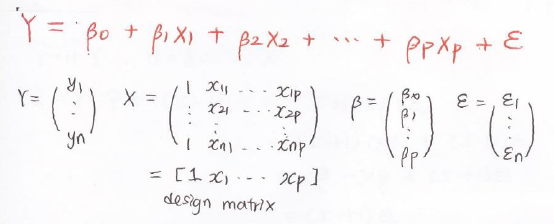 Y = β0 + β1X1 + β2X2 + ··· + βpXp + ε
Y = (y1 ⋮ yn) X = (1 x11 ···· x1p ⋮ x21 ··· x2p ⋮ ⋮ ⋮ 1 xn1 ···· xnp) β = (β0 β1 ⋮ βp) ε = (ε1 ⋮ εn)
= [1 x1 ··· xp]
design matrix